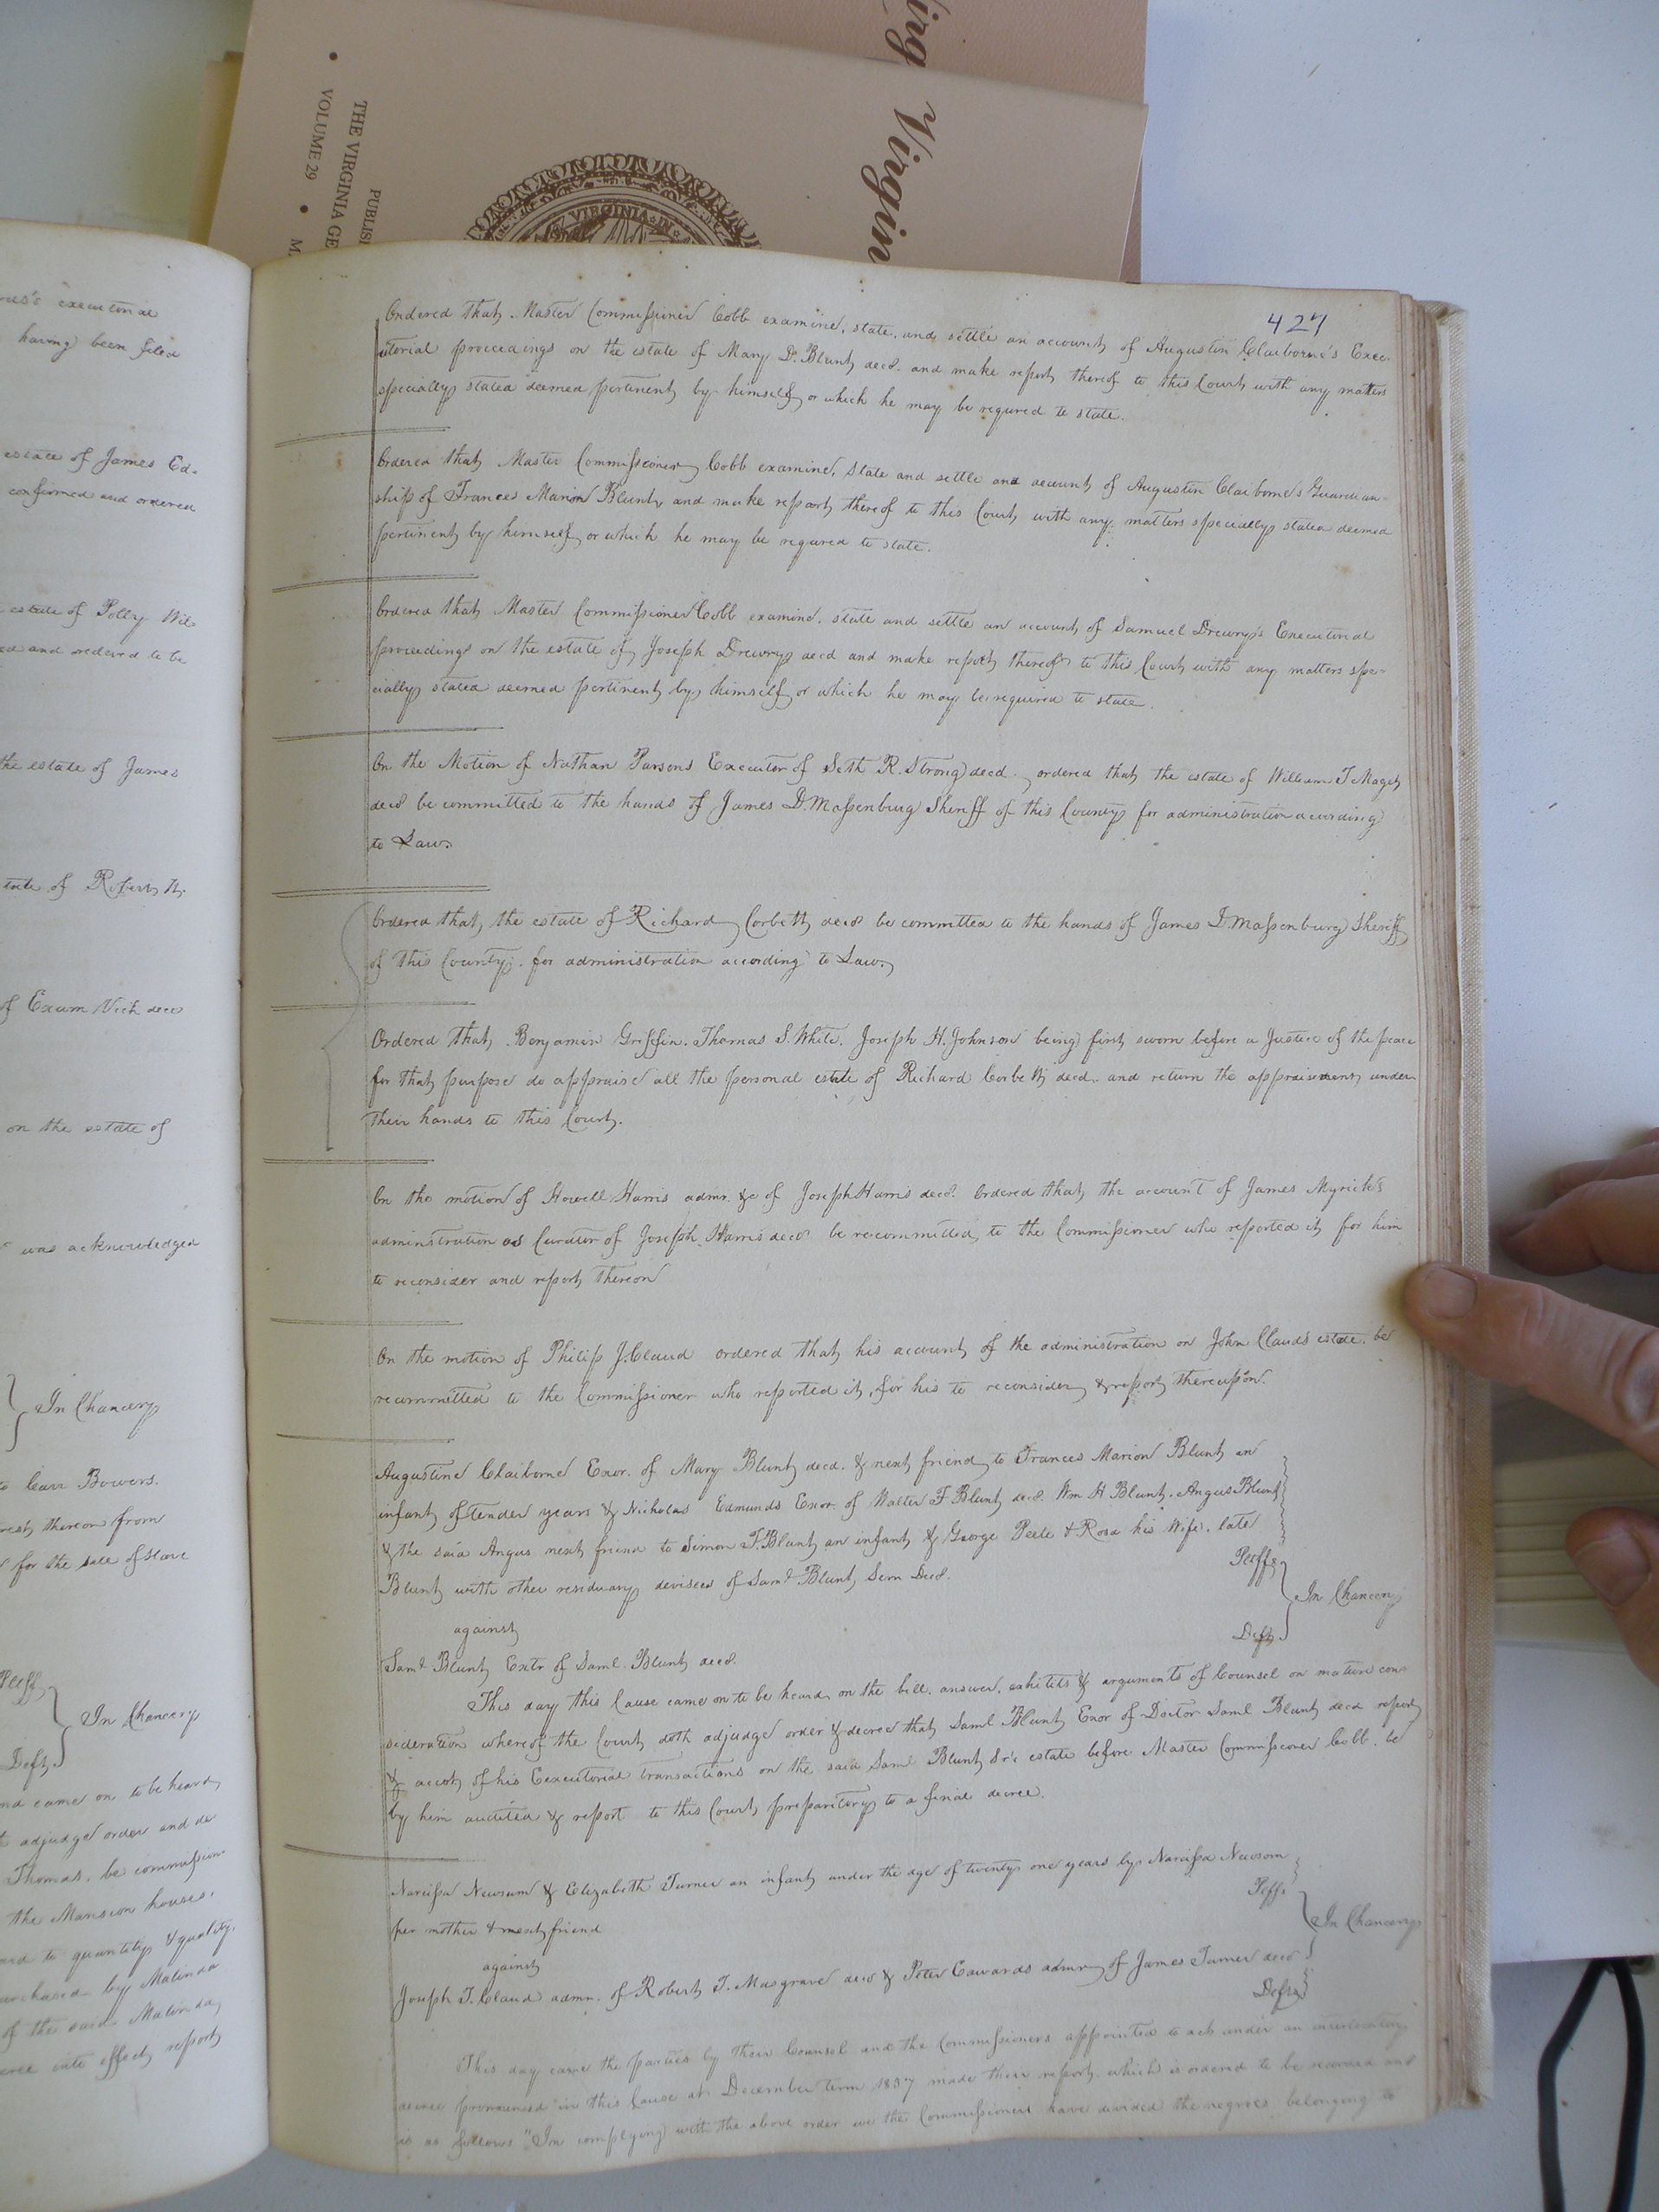 Virg
Virgin
THE VIRGINIA GE
VOLUME 29
M
PUBLIS
VIRGINIA IN
executorial
having been filed
estate of James Ed-
confirmed and ordered
estate of Polly Wil
ed and ordered to be
the estate of James
tate of Robert
of Exum Vick decd
on the estate of
was acknowledged
In Chancery
Bowers.
thereon from
for the sale of slave
Pltff
In Chancery
Deft
nd came on to be heard
adjudge order and de
Thomas, be commission
the Mansion house,
ard to quantity & quality,
urchased by Malinda
of the said Malinda
cree into effect, report
427
Ordered that Master Commissioner Cobb examine, state, and settle an account of Augustin Claiborne's Exec-
utorial proceedings on the estate of Mary Blunt decd. and make report thereof to this Court with any matters
specially stated deemed pertinent by himself or which he may be required to state.
Ordered that Master Commissioner Cobb examine, state and settle and account of Augustin Claiborne's Guardian-
ship of Frances Marion Blunt, and make report thereof to this Court, with any matters specially stated deemed
pertinent by himself, or which he may be required to state.
Ordered that Master Commissioner Cobb examine, state and settle an account of Samuel Drewry's Executorial
proceedings on the estate of Joseph Drewry decd and make report thereof to this Court with any matters spe-
cially stated deemed pertinent by himself or which he may be required to state.
On the Motion of Nathan Parsons Executor of Seth R. Strong decd, ordered that the estate of William T Maget
decd be committed to the hands of James D. Massenburg Sheriff of this County for administration according
to Law.
Ordered that the estate of Richard Corbett decd be committed to the hands of James D. Massenburg Sheriff
of this County, for administration according to Law.
Ordered that Benjamin Griffin. Thomas S. White. Joseph H. Johnson being first sworn before a Justice of the peace
for that purpose do appraise all the personal estate of Richard Corbett decd. and return the appraisement under
their hands to this Court.
On the motion of Howell Harris admr. &c of Joseph Harris decd. Ordered that the account of James Myrick's
administration as Curator of Joseph Harris decd be recommitted, to the Commissioner who reported it, for him
to reconsider and report thereon
On the motion of Philip J. Claud ordered that his account of the administration on John Claud's estate be
recommitted to the Commissioner who reported it, for his to reconsider & report thereupon.
Augustine Claiborne Exor. of Mary Blunt decd. & next friend to Frances Marion Blunt an
infant of tender years & Nicholas Edmunds Exor. of Walter F Blunt decd. Wm H Blunt. Angus Blunt
& the said Angus next friend to Simon T. Blunt an infant & George Peete & Rosa his Wife, late
Blunt with other residuary devisees of Saml Blunt, Senr Decd.
Pltffs
In Chancery
against
Deft
Saml Blunt Extr of Saml Blunt decd.
This day this Cause came on to be heard, on the bill, answer, exhibits & arguments of Counsel on mature con-
sideration whereof the Court doth adjudge order & decree that Saml Blunt Exor of Doctor Saml Blunt decd report
& accot, of his Executorial transactions on the said Saml Blunt Sr's estate before Master Commissioner Cobb. be
by him audited & report to this Court preparitory to a final decree.
Narcissa Newsum & Elizabeth Turner an infant under the age of twenty one years by Narcissa Newsom
Pltffs
her mother & next friend
In Chancery
against
Joseph T. Claud admr. of Robert T. Musgrave decd & Peter Edwards admr of James Turner decd
Defts
This day came the parties by their Counsel and the Commissioners appointed to act under an interlocutory
decree pronounced in this Cause at December term 1837 made their report, which is ordered to be recorded and
is as follows "In complying with the above order we the Commissioners have divided the negroes belonging to